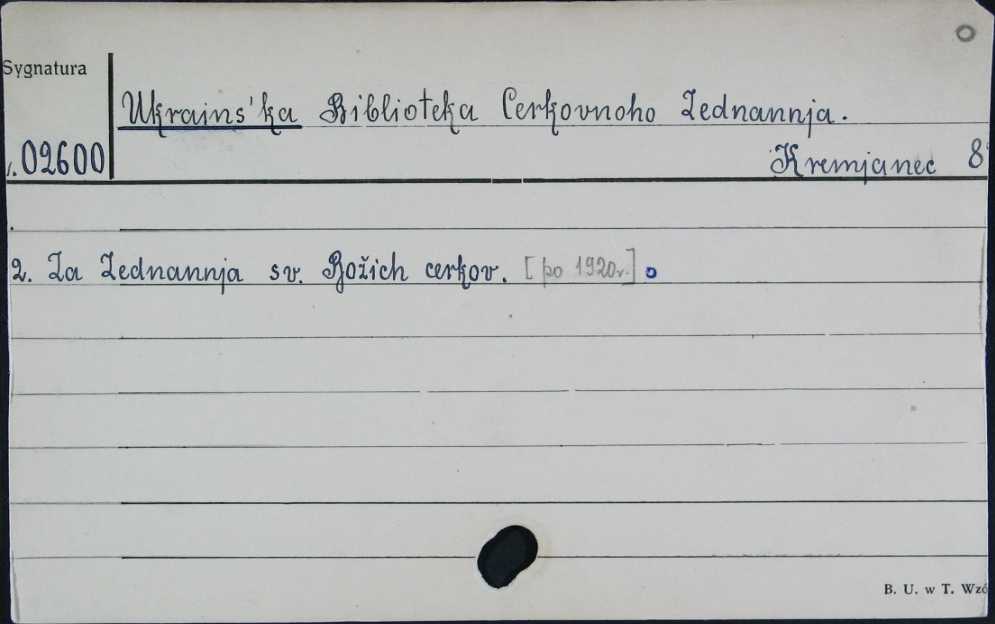 Sygnatura
Ukrains'ka Biblioteka Cerkovnoho Zednannja.
02600
Kremjanec 8°
2. Za Zednannja sv. Božich cerkov. [po 1920r.]
B. U. w T. Wzó